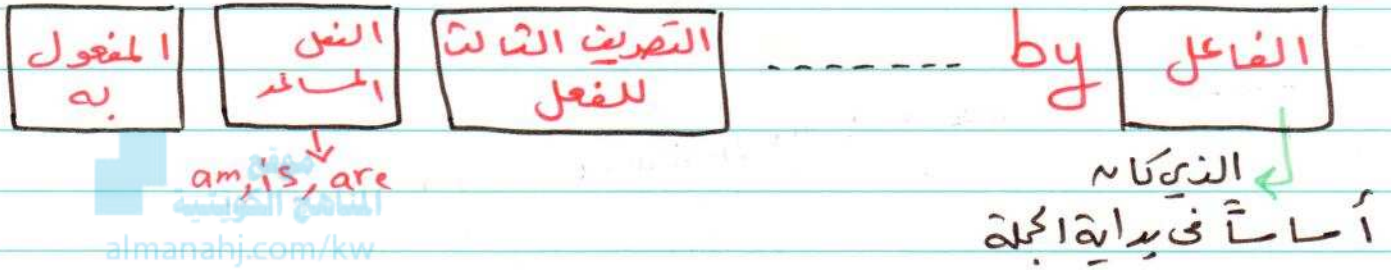 المفعول به
الفعل المساعد
التصريف الثالث للفعل
--------
by
الفاعل
am, is, are
الذي كان
أساساً في بداية الجملة
موقع
المناهج الكويتية
almanahj.com/kw